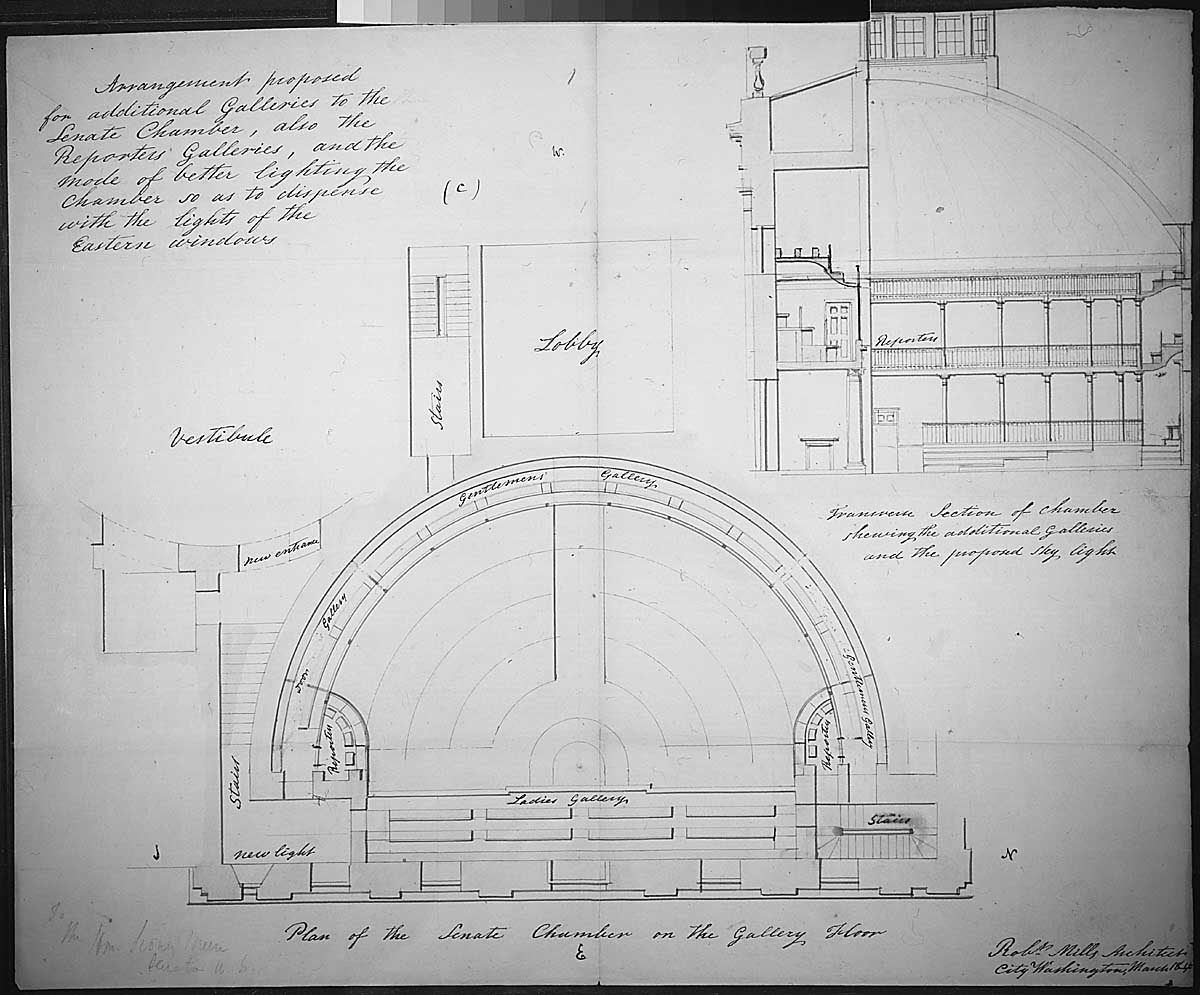 Arrangement proposed
for additional Galleries to the
Senate Chamber, also the
Reporters Galleries, and the
mode of better lighting the
Chamber so as to dispense
with the lights of the
Eastern windows
(C)
W.
Reporters
Transverse Section of Chamber
shewing the additional Galleries
and the proposed Sky light
Lobby
Stairs
Vestibule
new entrance
Gentlemens Gallery
Gallery
Door
Reporters
Gentlemens Gallery
Reporters
Stairs
Ladies Gallery
Stairs
new light
S
N
Plan of the Senate Chamber on the Gallery Floor
E
To
the Hon.
Senator U.S.
Robt. Mills Architect
City Washington, March